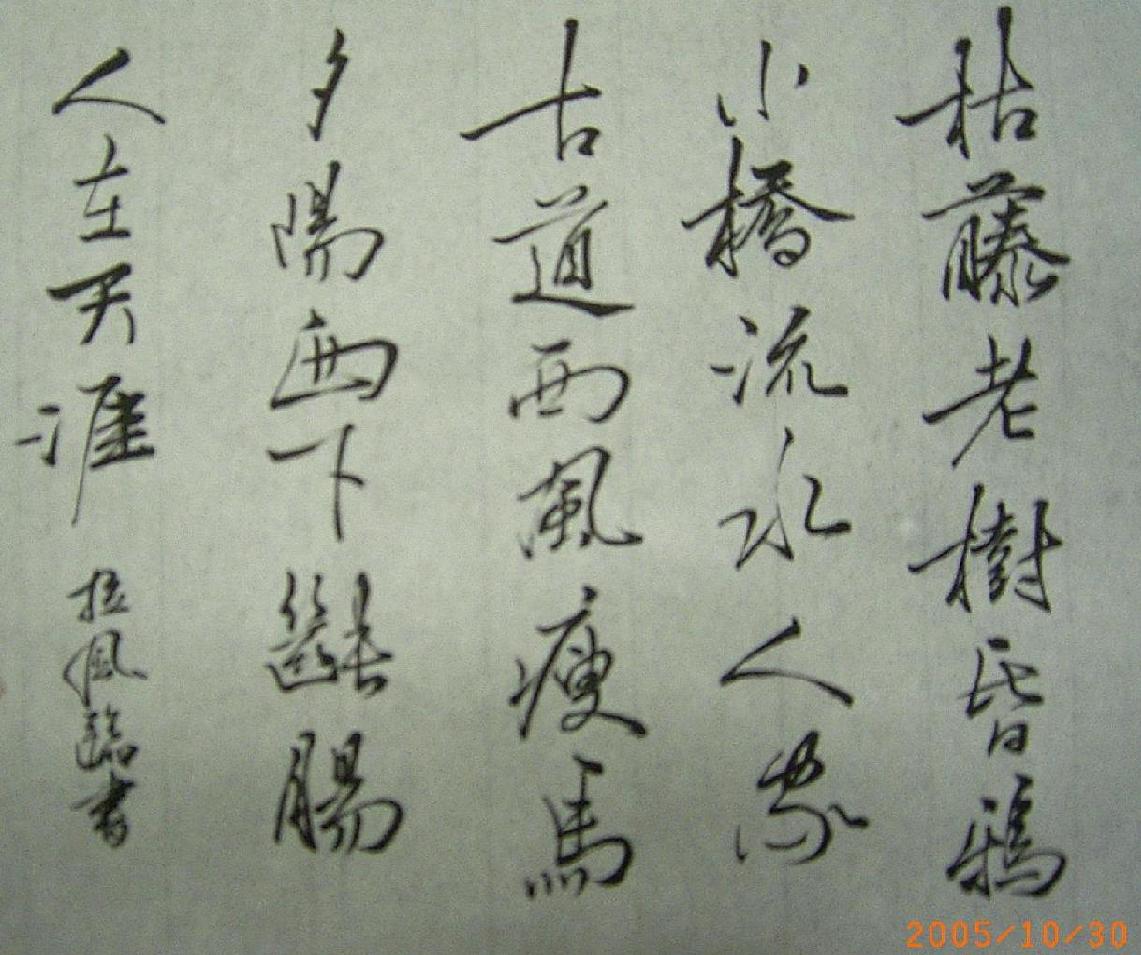 枯藤老樹昏鴉
小橋流水人家
古道西風瘦馬
夕陽西下斷腸
人在天涯 拉風臨書
2005/10/30